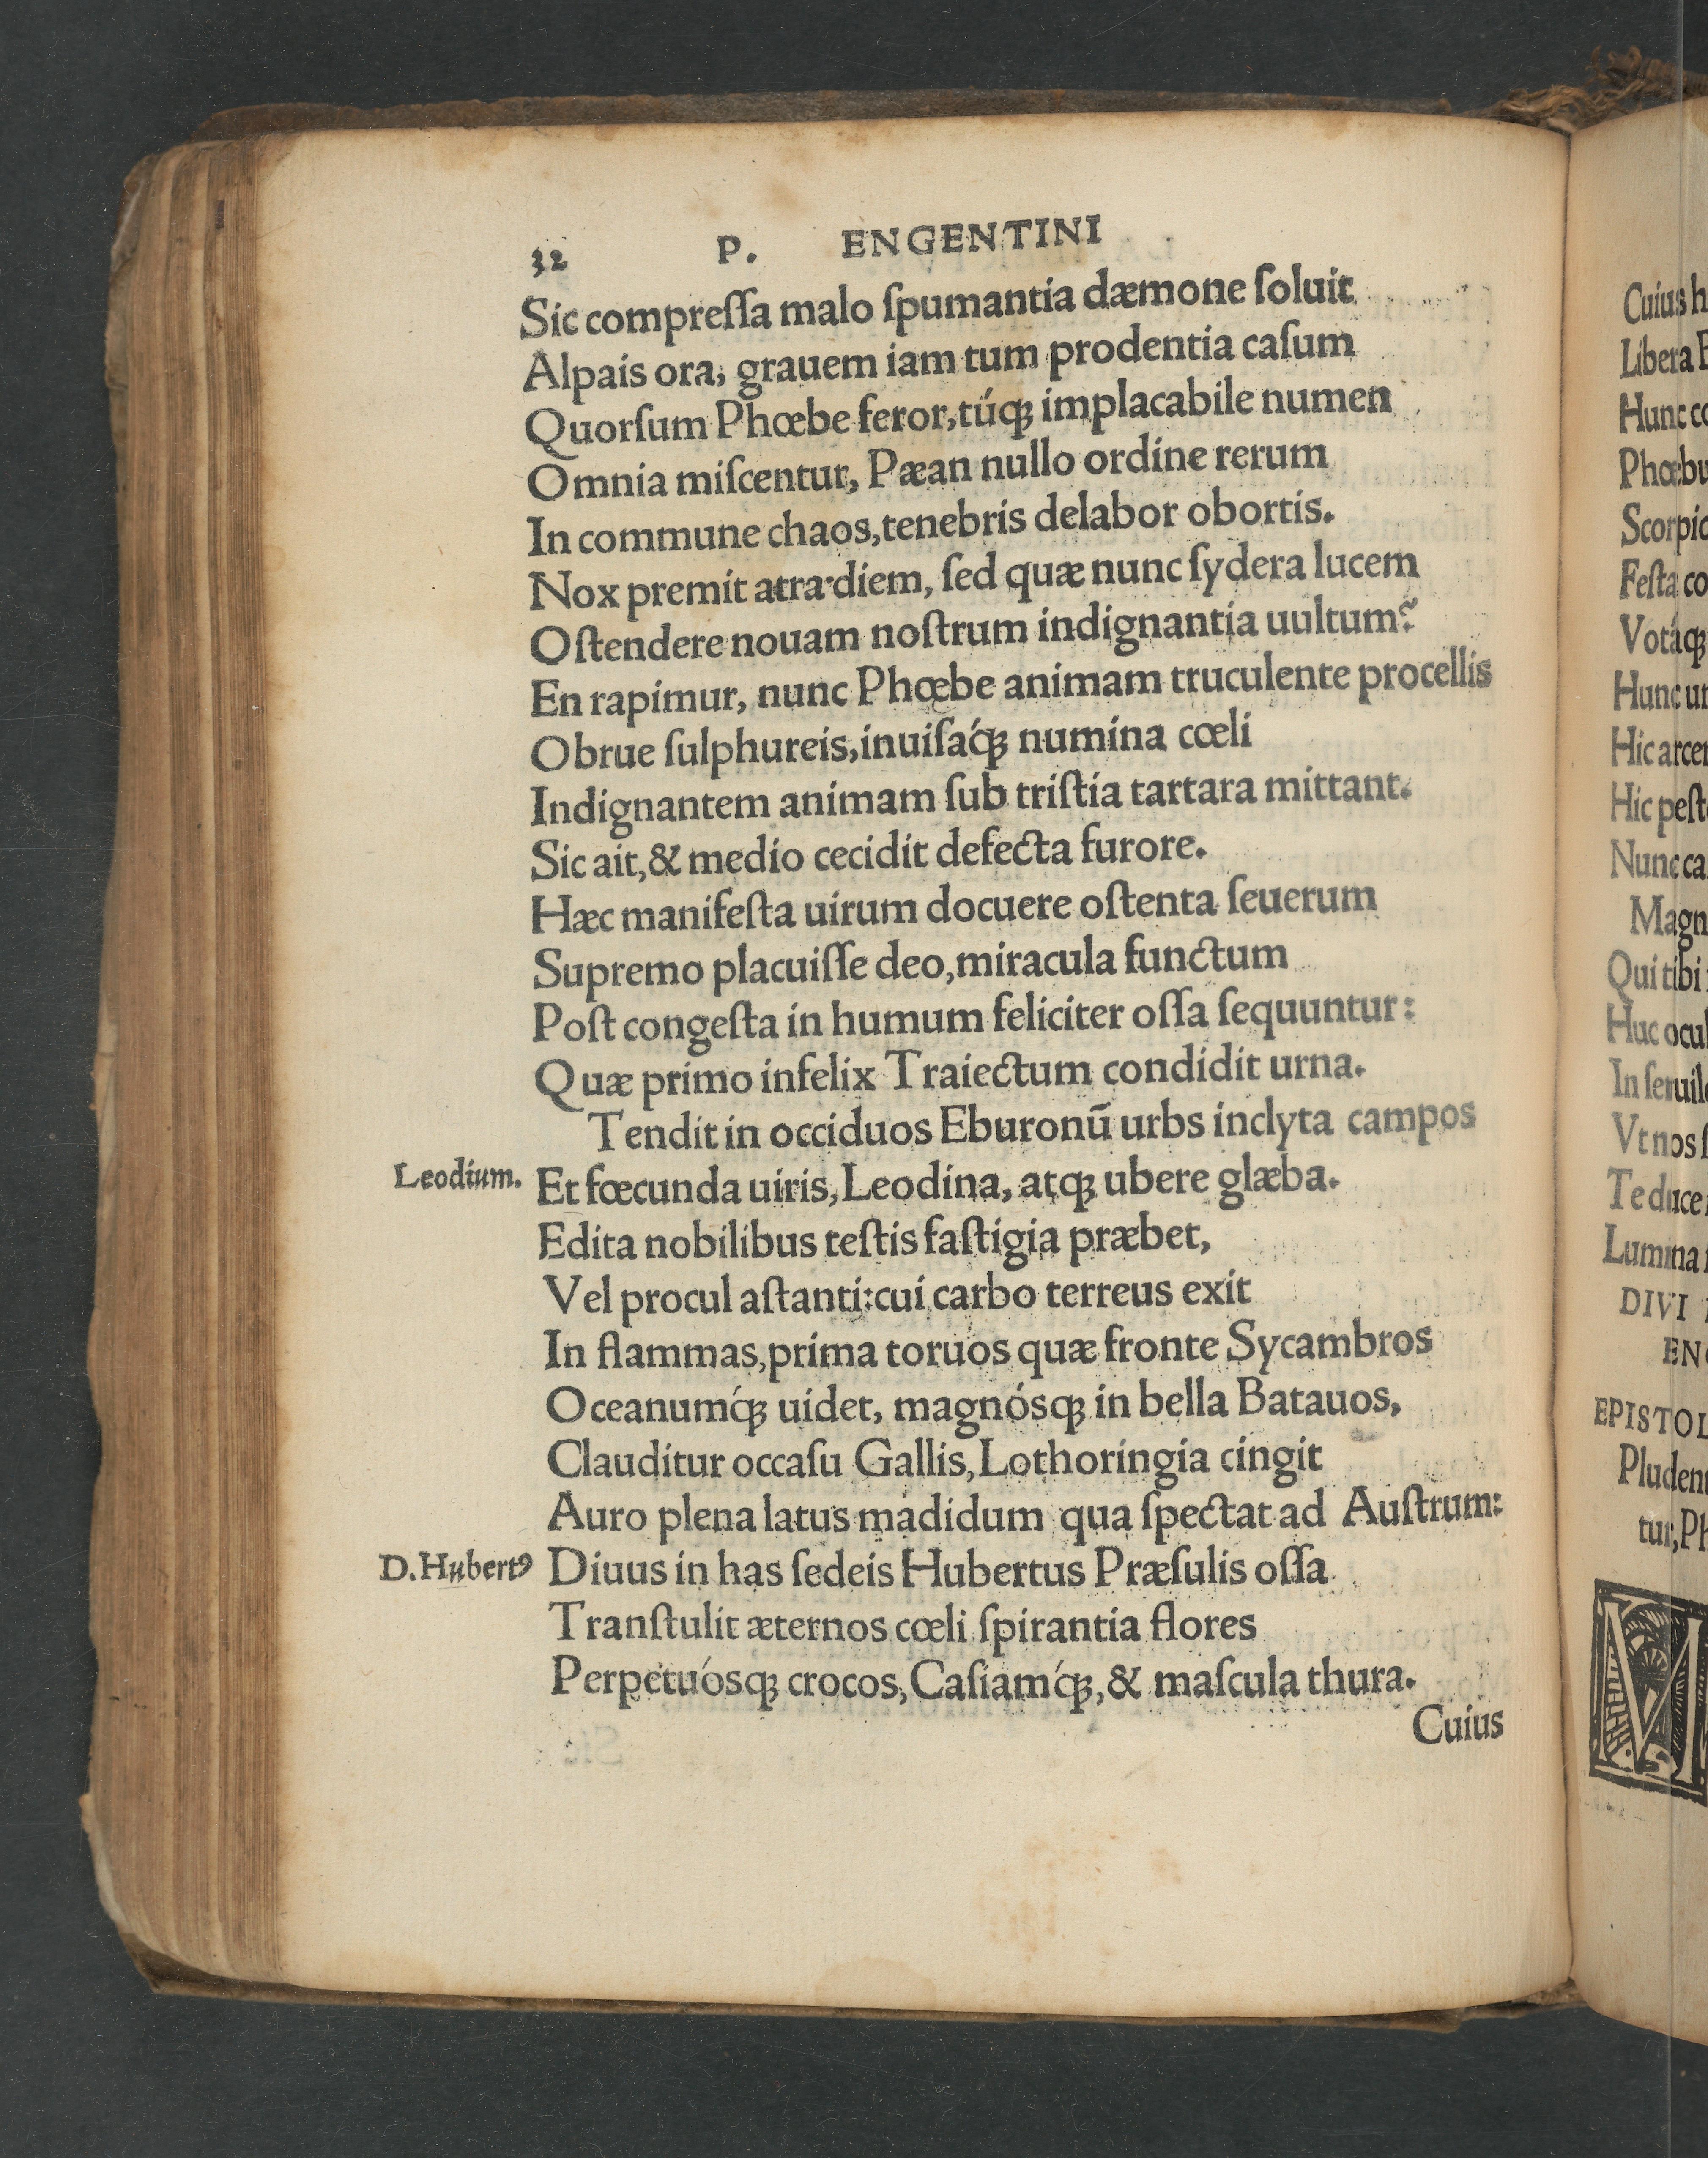 32 P. ENGENTINI
Sic compreſſa malo ſpumantia dæmone ſoluit
Alpais ora, grauem iam tum prodentia caſum
Quorſum Phœbe feror, túq&#xA757; implacabile numen
Omnia miſcentur, Pæan nullo ordine rerum
In commune chaos, tenebris delabor obortis.
Nox premit atra diem, ſed quæ nunc ſydera lucem
Oſtendere nouam noſtrum indignantia uultum?
En rapimur, nunc Phœbe animam truculente procellis
Obrue ſulphureis, inuiſáqꝫ numina cœli
Indignantem animam ſub triſtia tartara mittant.
Sic ait, & medio cecidit defecta furore.
Hæc manifeſta uirum docuere oſtenta ſeuerum
Supremo placuiſſe deo, miracula functum
Poſt congeſta in humum feliciter oſſa ſequuntur:
Quæ primo infelix Traiectum condidit urna.
Tendit in occiduos Eburonū urbs inclyta campos
Leodium. Et fœcunda uiris, Leodina, atqꝫ ubere glæba.
Edita nobilibus teſtis faſtigia præbet,
Vel procul aſtanti: cui carbo terreus exit
In flammas, prima toruos quæ fronte Sycambros
Oceanumq́ꝫ uidet, magnósqꝫ in bella Batauos,
Clauditur occaſu Gallis, Lothoringia cingit
Auro plena latus madidum qua ſpectat ad Auſtrum:
D. Hubertꝰ Diuus in has ſedeis Hubertus Præſulis oſſa
Tranſtulit æternos cœli ſpirantia flores
Perpetuósqꝫ crocos, Caſiamq́ꝫ, & maſcula thura.
Cuius
Cuius
Libera
Hunc
Scorpio
Feſta
Votáqꝫ
Hunc
Hic
Hic
Nunc
Qui tibi
Huc
Vt nos
Te duce
DIVI